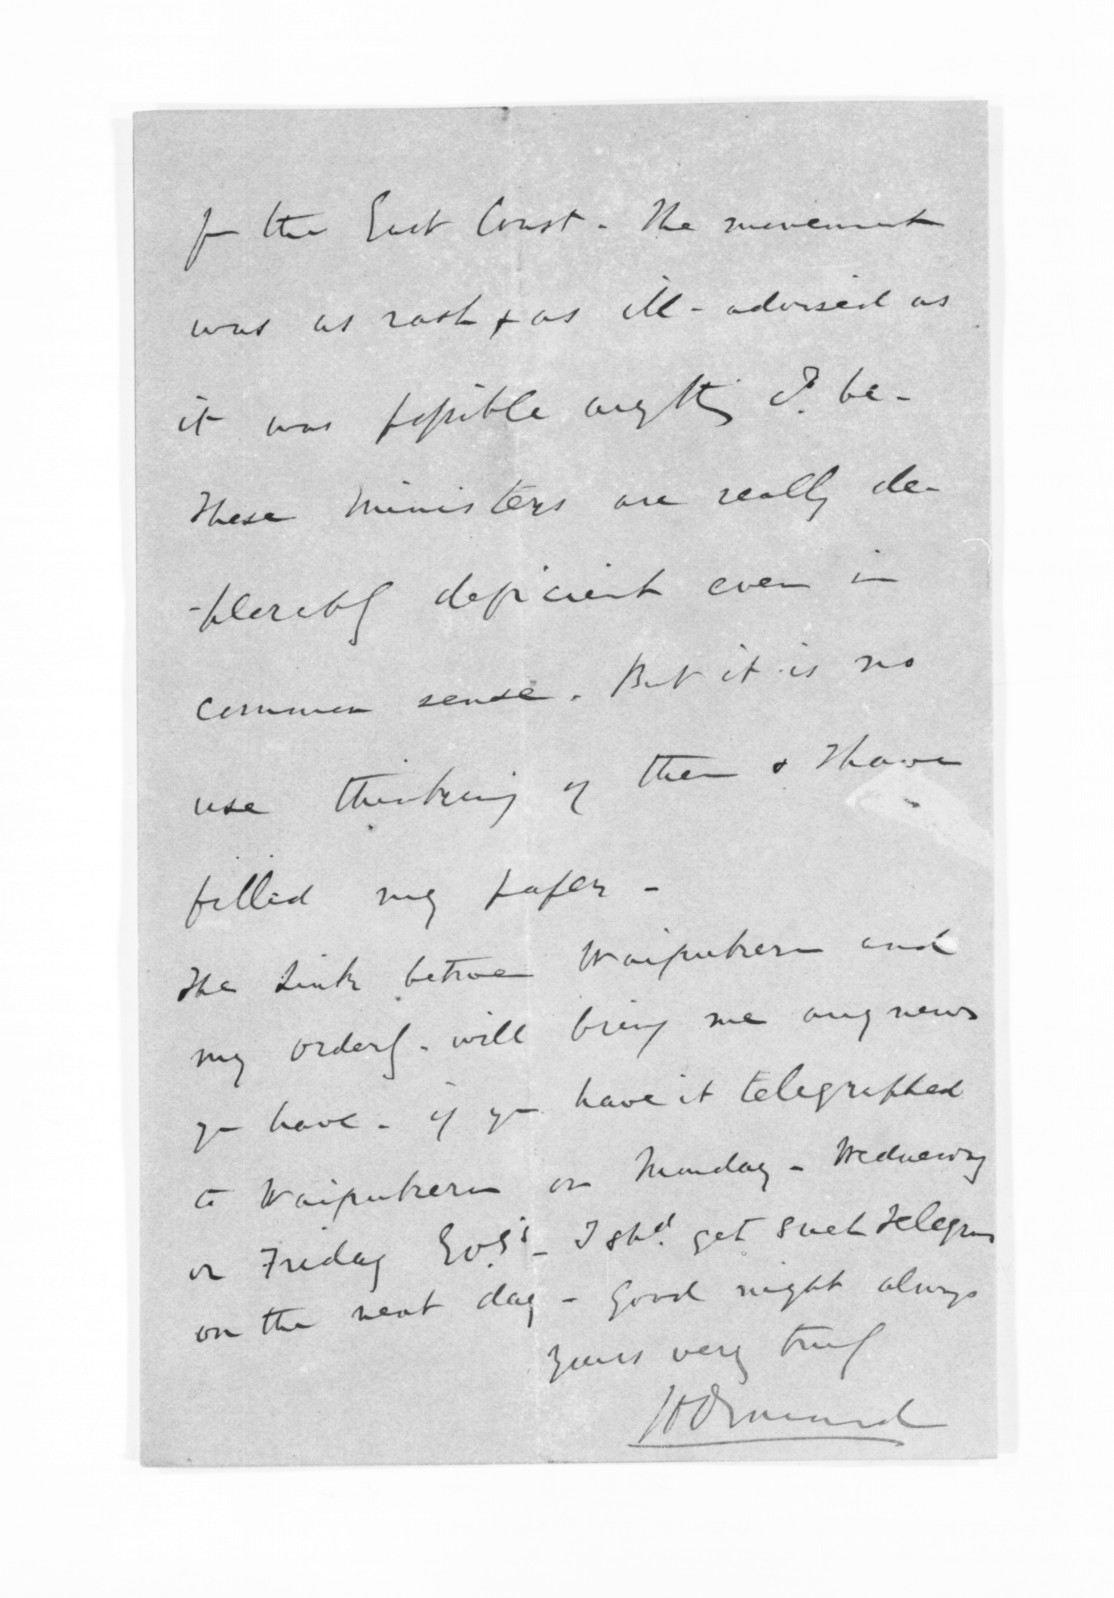 for the East Coast - The movement
was as rash & as ill-advised as
it was possible anything cd. be -
These Ministers are really de-
-plorably deficient even in
common sense. But it is no
use thinking of them & I have
filled my paper -
The link between Waipukurau and
my orderly - will bring me any news
you have - if you have it telegraphed
to Waipukurau on Monday - Wednesday
or Friday Evgs. - I shd. get such telegrams
on the next day - Good night always
yours very truly
JDOrmond